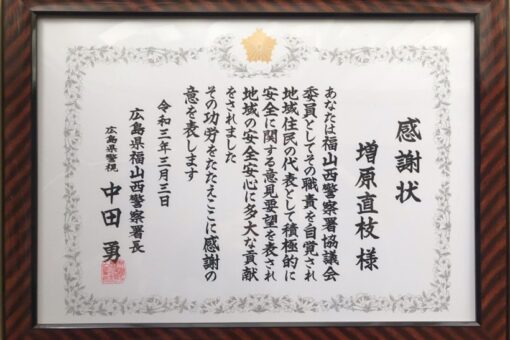 感謝状
増原直枝 様
あなたは福山西警察署協議会
委員としてその職責を自覚され
地域住民の代表として積極的に
安全に関する意見要望を表され
地域の安全安心に多大な貢献
をされました
その功労をたたえここに感謝の
意を表します
令和三年三月三日
広島県福山西警察署長
広島県警視 中田 勇